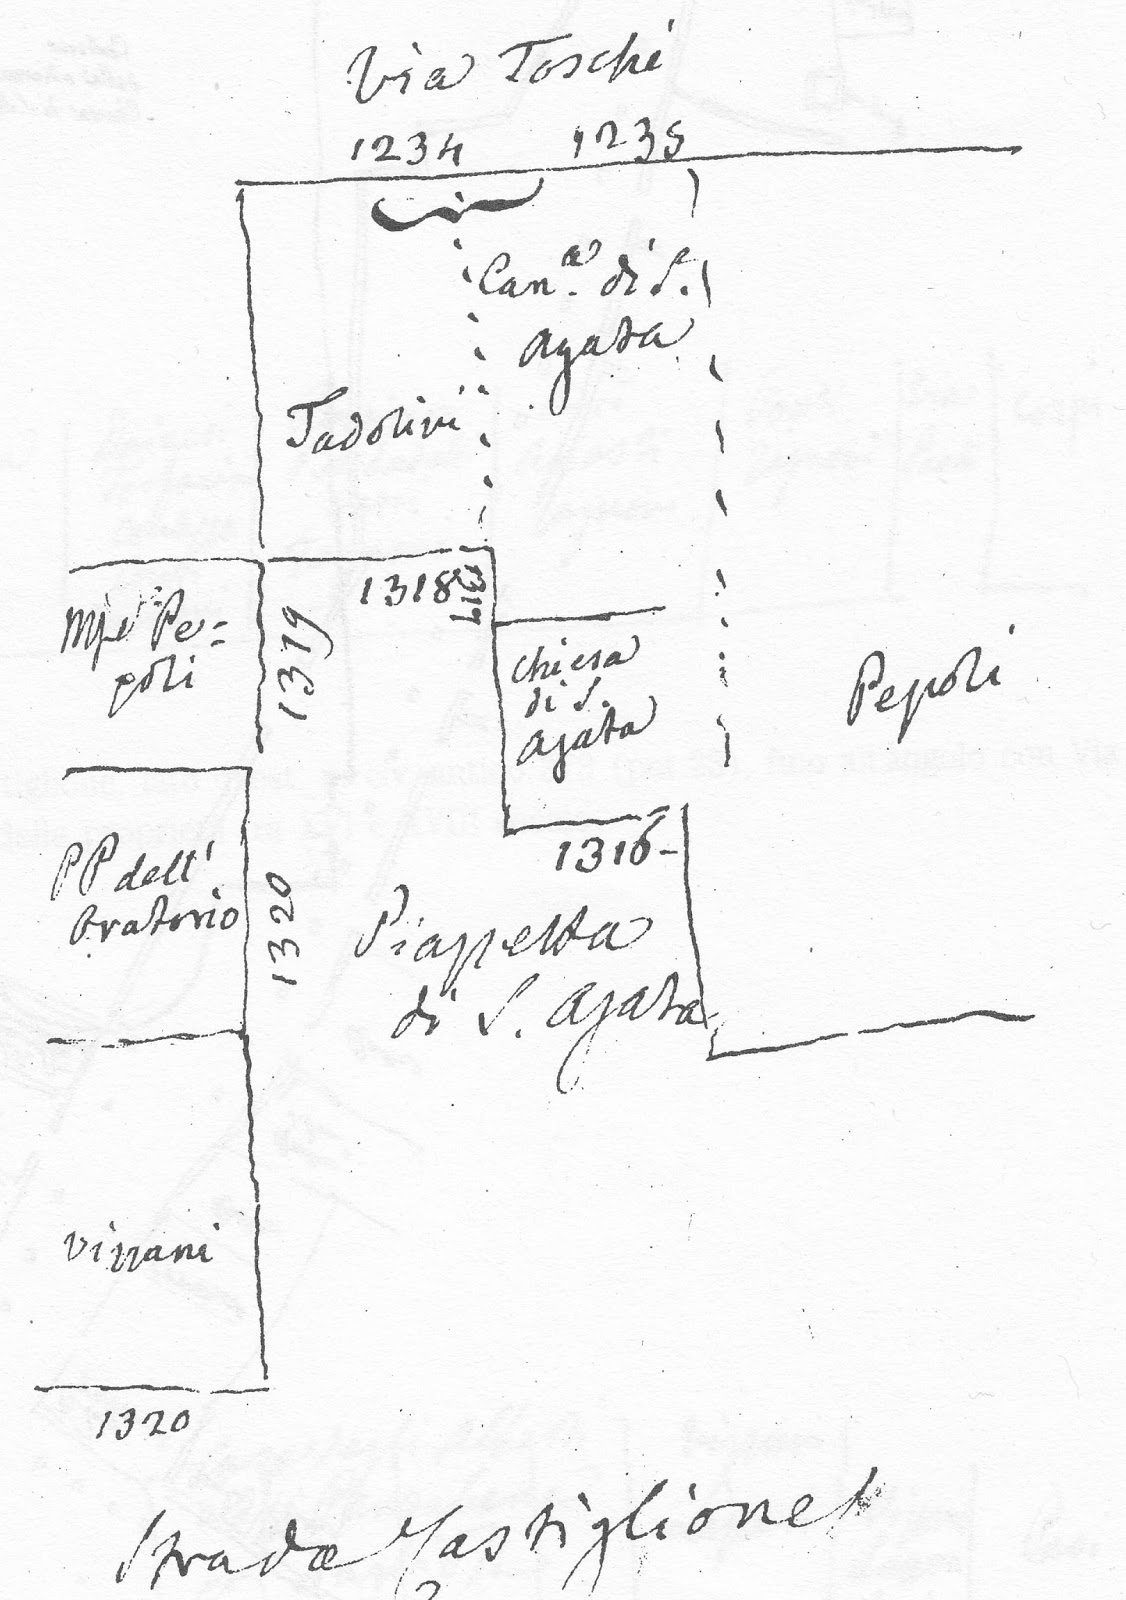 Via Toschi
1234 1235
Can.ª di S.
Agata
Tadolini
1318
1317
Mse Pe=
poli
1319
Chiesa
di S.
Agata
Pepoli
1316
PP dell'
Oratorio
1320
Piazzetta
di S. Agata
Vizzani
1320
Strada Castiglione